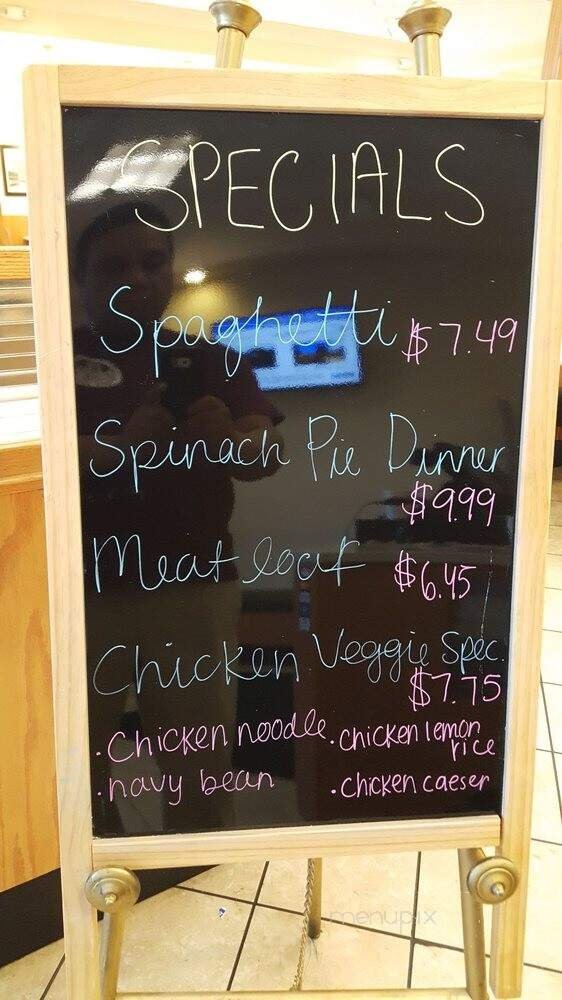 SPECIALS
Spaghetti $7.49
Spinach Pie Dinner
$9.99
Meat loaf $6.45
Chicken Veggie Spec.
$7.75
• Chicken noodle • chicken lemon
rice
• navy bean • chicken caeser
menupix